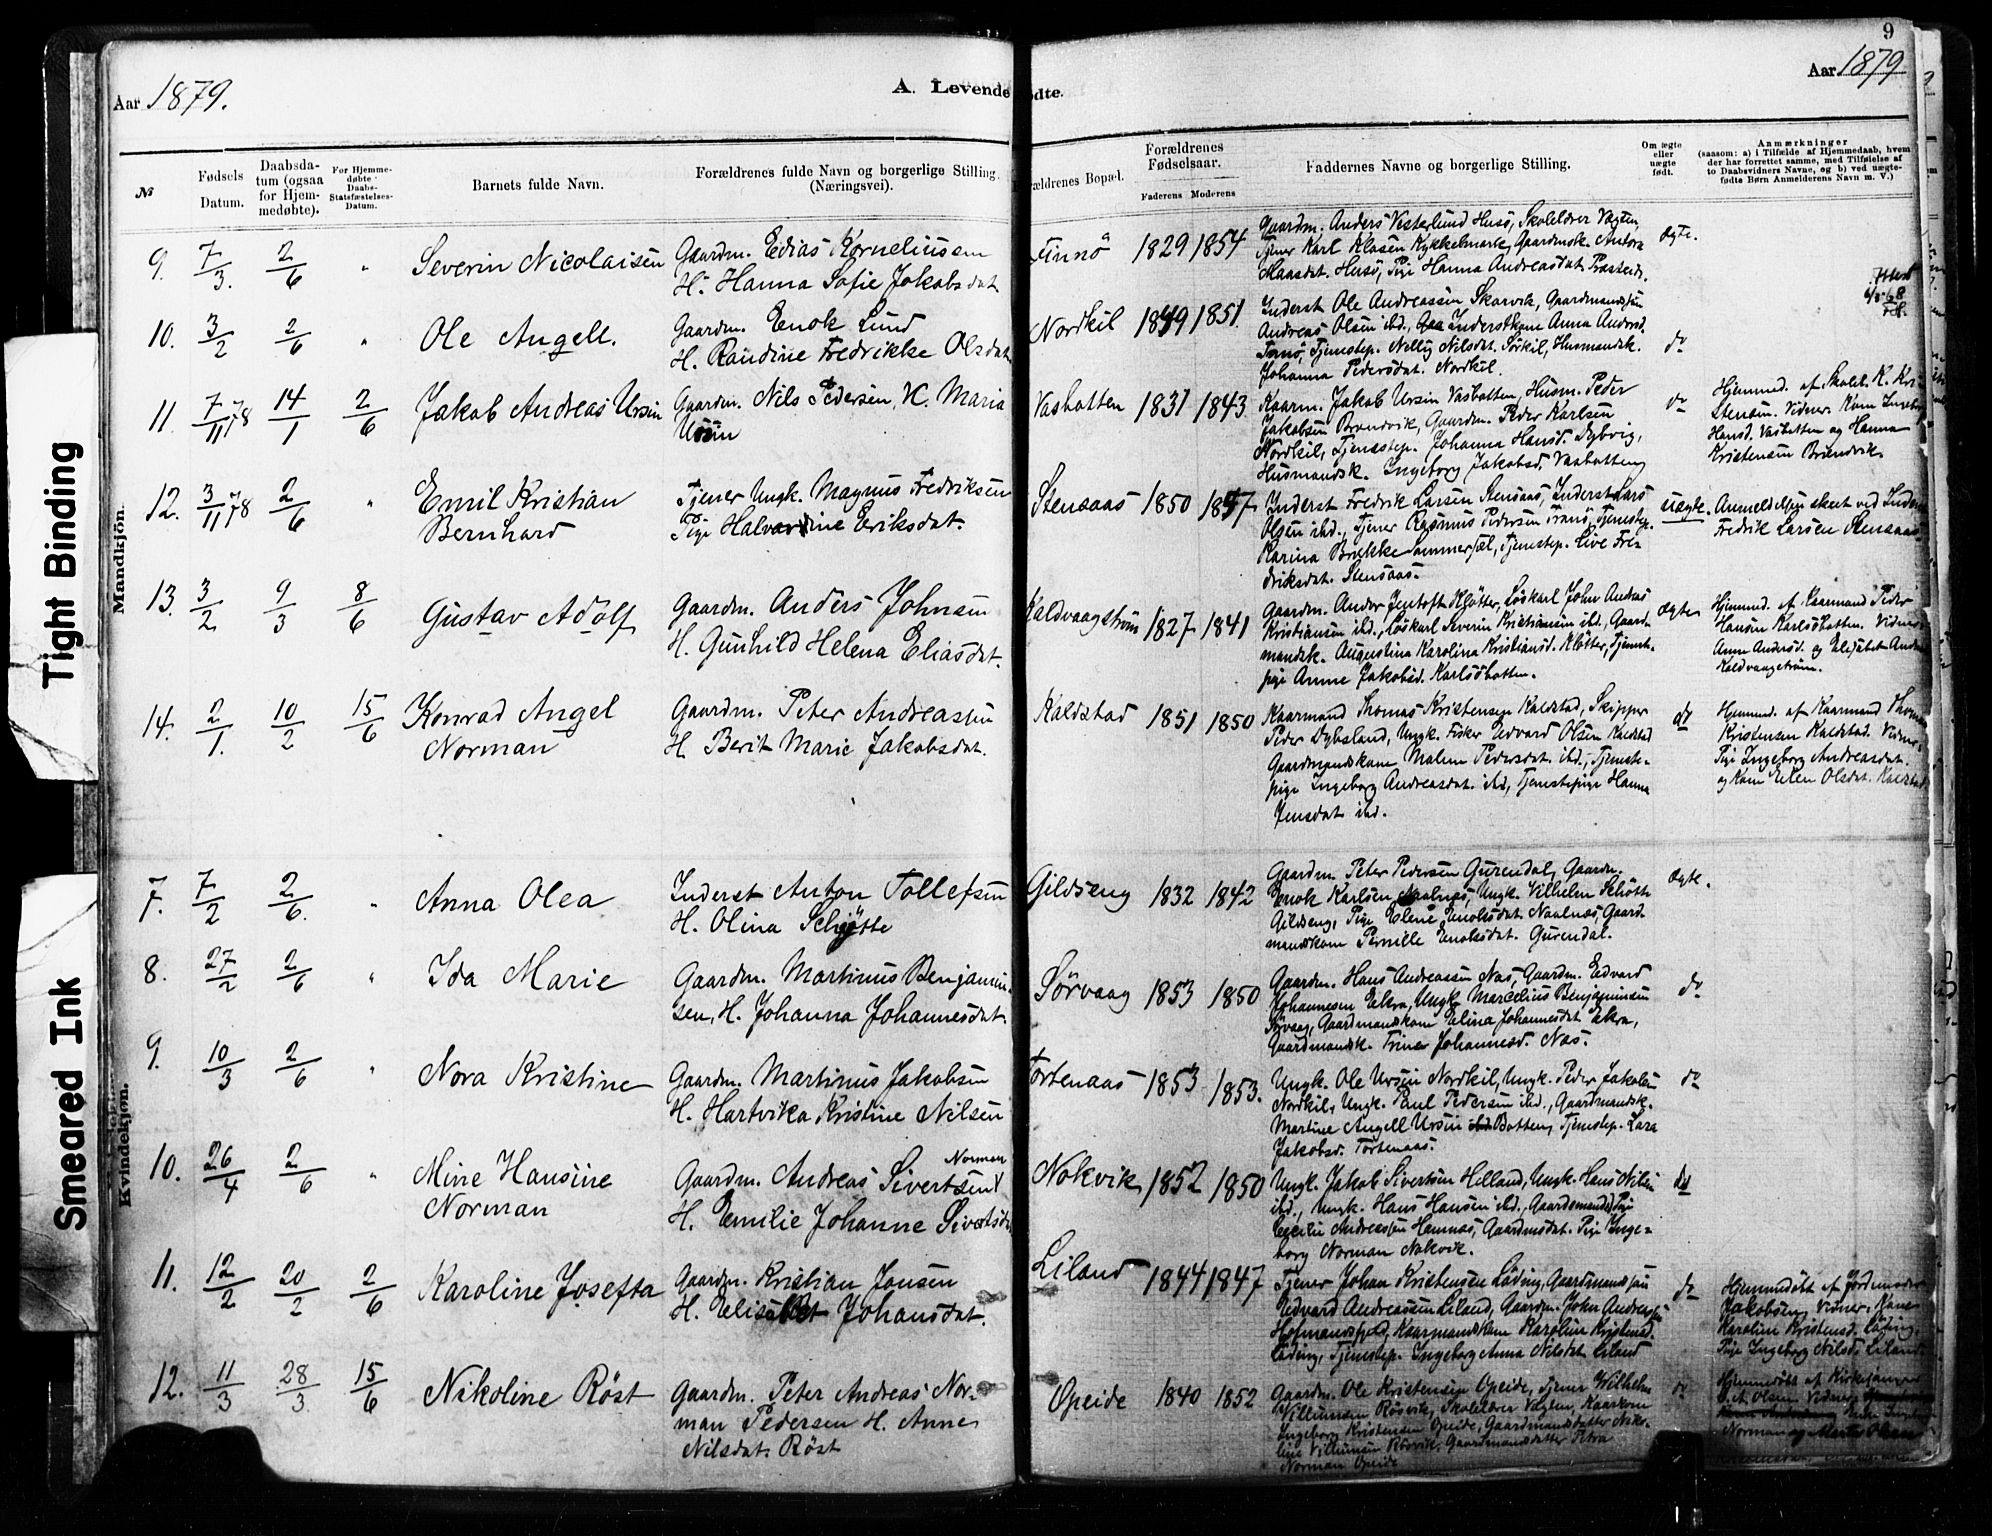 Tight Binding
Smeared Ink
Aar 1879.
A. Levende
ødte.
9
Aar 1879
№
Fødsels Datum.
Daabsdatum (ogsaa for Hjemmedøbte).
For Hjemmedøbte Daabs-Statsfæstelses-Datum.
Barnets fulde Navn.
Forældrenes fulde Navn og borgerlige Stilling. (Næringsvei).
ældrenes Bopæl.
Forældrenes Fødselsaar.
Faderens Moderens
Faddernes Navne og borgerlige Stilling.
Om ægte eller uægte født.
Anmærkninger
(saasom: a) i Tilfælde af Hjemmedaab, hvem
der har forrettet samme, med Tilføielse af
to Daabsvidners Navne, og b) ved uægte-
fødte Børn Anmelderens Navn m. V.)
Mandkjøn.
9. 7/3. 2/6 " Severin Nicolaisen
Gaardm. Edias Korneliussen
H. Hanna Sofie Jakobsdat
Finnø 1829 1854
Gaardm. Anders Vesterlund Husø, Skolelærer Vagten,
Tjener Karl Klasen Kykkelmark, Gaardmsk. Antora
Maasdat. Husø, Pige Hanna Andreasdat. Præsteid.
Ægte.
10. 3/2 2/6 " Ole Angell.
Gaardm. Enok Lund
H. Randine Fredrikke Olsdat.
Nordkil 1849 1851
Inderst Ole Andreassen Skarvik, Gaardmandssøn
Andreas Olsen ibd., Inderstkone Anna Andersd.
Tranø, Tjenestep. Nelly Nilsdat. Sørkil, Husmandsk.
Johanna Pedersdat. Nordkil.
do
11. 7/11 78 14/1 2/6 Jakob Andreas Ursin
Gaardm. Nils Pedersen, K. Maria
Ursin
Vasbotten 1831 1843
Kaarm. Jakob Ursin Vasbotten, Husm. Peder
Jakobsen Brandvik, Gaardm. Peder Karlsen
Nordkil, Tjenestep. Johanna Hansd. Dybvig,
Husmandsk. Ingeborg Jakobsd. Vasbotten
do
Hjemmed. af Skolel. K. Kri-
stensen. Vidner. Kone Ingeborg
Hansd. Vasbotten og Hanna
Kristensen Brandvik.
12. 3/11 78 2/6 " Emil Kristian
Bernhard
Tjener Ungk. Magnus Fredriksen
Pige Halvardine Eriksdat.
Stensaas 1850 1857
Inderst Fredrik Larsen Stensaas, Inderst Lars
Olsen ibd., Tjener Rasmus Pedersen Tranø, Tjenestep.
Karina Brække Sommersæl, Tjenestep. Live Fre-
driksdat. Stensaas.
uægte
Anmeldelsen skeet ved Inderst
Fredrik Larsen Stensaas.
13. 3/2 9/3 8/6 Gustav Adolf
Gaardm. Anders Johnsen
H. Gunhild Helena Eliasdat.
Kaldvaagstrøm 1827 1841
Gaardm. Ander Jentoft Kløtter, Løskarl John Andreas
Kristiansen ibd., Løskarl Severin Kristiansen ibd., Gaard-
mandsk. Augustina Karolina Kristiansd. Kløtter, Tjeneste-
pige Anne Jakobsd. Karlsøbotten.
Ægte
Hjemmed. af Kaarmand Peder
Hansen Karlsøbotten. Vidner
Anne Andersd. og Elisabet Anders
Kaldvaagstrøm.
14. 2/1. 10/2 15/6 Konrad Angel
Norman
Gaardm. Peter Andreassen
H. Berit Marie Jakobsdat.
Kaldstad 1851 1850
Kaarmand Thomas Kristensen Kaldstad, Skipper
Peder Dybsland, Ungk. Fisker Edvard Olsen Kaldstad
Gaardmandskone Malene Pedersdat. ibd., Tjeneste-
pige Ingeborg Andreasdat. ibd, Tjenestepige Hanna
Jensdat ibd.
do
Hjemmed. af Kaarmand Thomas
Kristensen Kaldstad. Vidner,
Pige Ingeborg Andreasdat.
og Kone Elen Olsdat. Kaldstad
Kvindekjøn.
7. 7/2 2/6. " Anna Olea
Inderst Anton Tollefsen
H. Olina Schjøtte
Gildseng 1832 1842
Gaardm. Peter Pedersen Gurendal, Gaardm.
Enok Karlsen Naalnæs, Ungk. Vilhelm Schøtte
Gildseng, Pige Elene Enoksdat. Naalnæs, Gaard-
mandskone Pernille Enoksdat. Gurendal.
Ægte.
8. 27/2 2/6 " Ida Marie
Gaardm. Martinus Benjamin-
sen, H. Johanna Johannesdat.
Sørvaag 1853 1850
Gaardm. Hans Andreassen Næs, Gaardm. Edvard
Johannesen Elkra, Ungk. Marcelius Benjaminsen
Sørvaag, Gaardmandskone Elina Johannesdat Elkra,
Gaardmandsk. Trine Johannesd. Næs.
do
9. 10/3 2/6 " Nora Kristine
Gaardm. Martinus Jakobsen
H. Hartvika Kristine Nilsen
Tortenaas 1853 1853.
Ungk. Ole Ursin Nordkil, Ungk. Peder Jakobsen
Nordkil, Ungk. Paul Pedersen ibd., Gaardmandsk.
Martine Angell Ursin Botten, Tjenestep. Lara
Jakobsd. Tortenaas.
do
10. 26/4 2/6 " Mine Hansine
Norman
Gaardm. Andreas Sivertsen Norman
H. Emilie Johanne Sivertsd.
Nokvik 1852 1850
Ungk. Jakob Sivertsen Helland, Ungk. Hans Nilsen
ibd., Ungk. Hans Hansen ibd., Gaardsmandsd Pige
Cecilie Andreassen Hamnæs, Gaardmsdat. Pige Inge-
borg Norman Nokvik.
do
11. 12/2 20/2 2/6 Karoline Josefta
Gaardm. Kristian Jonsen
H. Elisabet Johansdat.
Liland 1844 1847
Tjener Johan Kristensen Løding, Gaardmandssøn
Edvard Andreassen Liland, Gaardm. John Andreassen
Hofmandsfjord, Kaarmandskone Karoline Kristensd.
Løding, Tjenestep. Ingeborg Anna Nilsdat Liland
do
Hjemmedøbt af Jordemoder
Jakobsen, Vidner, Kone
Karoline Kristensd. Løding,
Pige Ingeborg Nilsd. Liland.
12. 11/3 28/3. 15/6 Nikoline Røst
Gaardm. Peter Andreas Nor-
man Pedersen H. Anne
Nilsdat. Røst
Opeide 1840 1852
Gaardm. Ole Kristensen Opeide, Tjener Wilhelm
Villumsen Rørvik, Skolelærer Vagten, Kaarkone
Ingeborg Kristensen Opeide, Gaardmandsdatter Niko-
line Villumsen Rørvik, Gaardmandsdatter Petra
Norman Opeide
do
Hjemmedøbt af Kirkesanger
Olsen Vidner,
Norman og